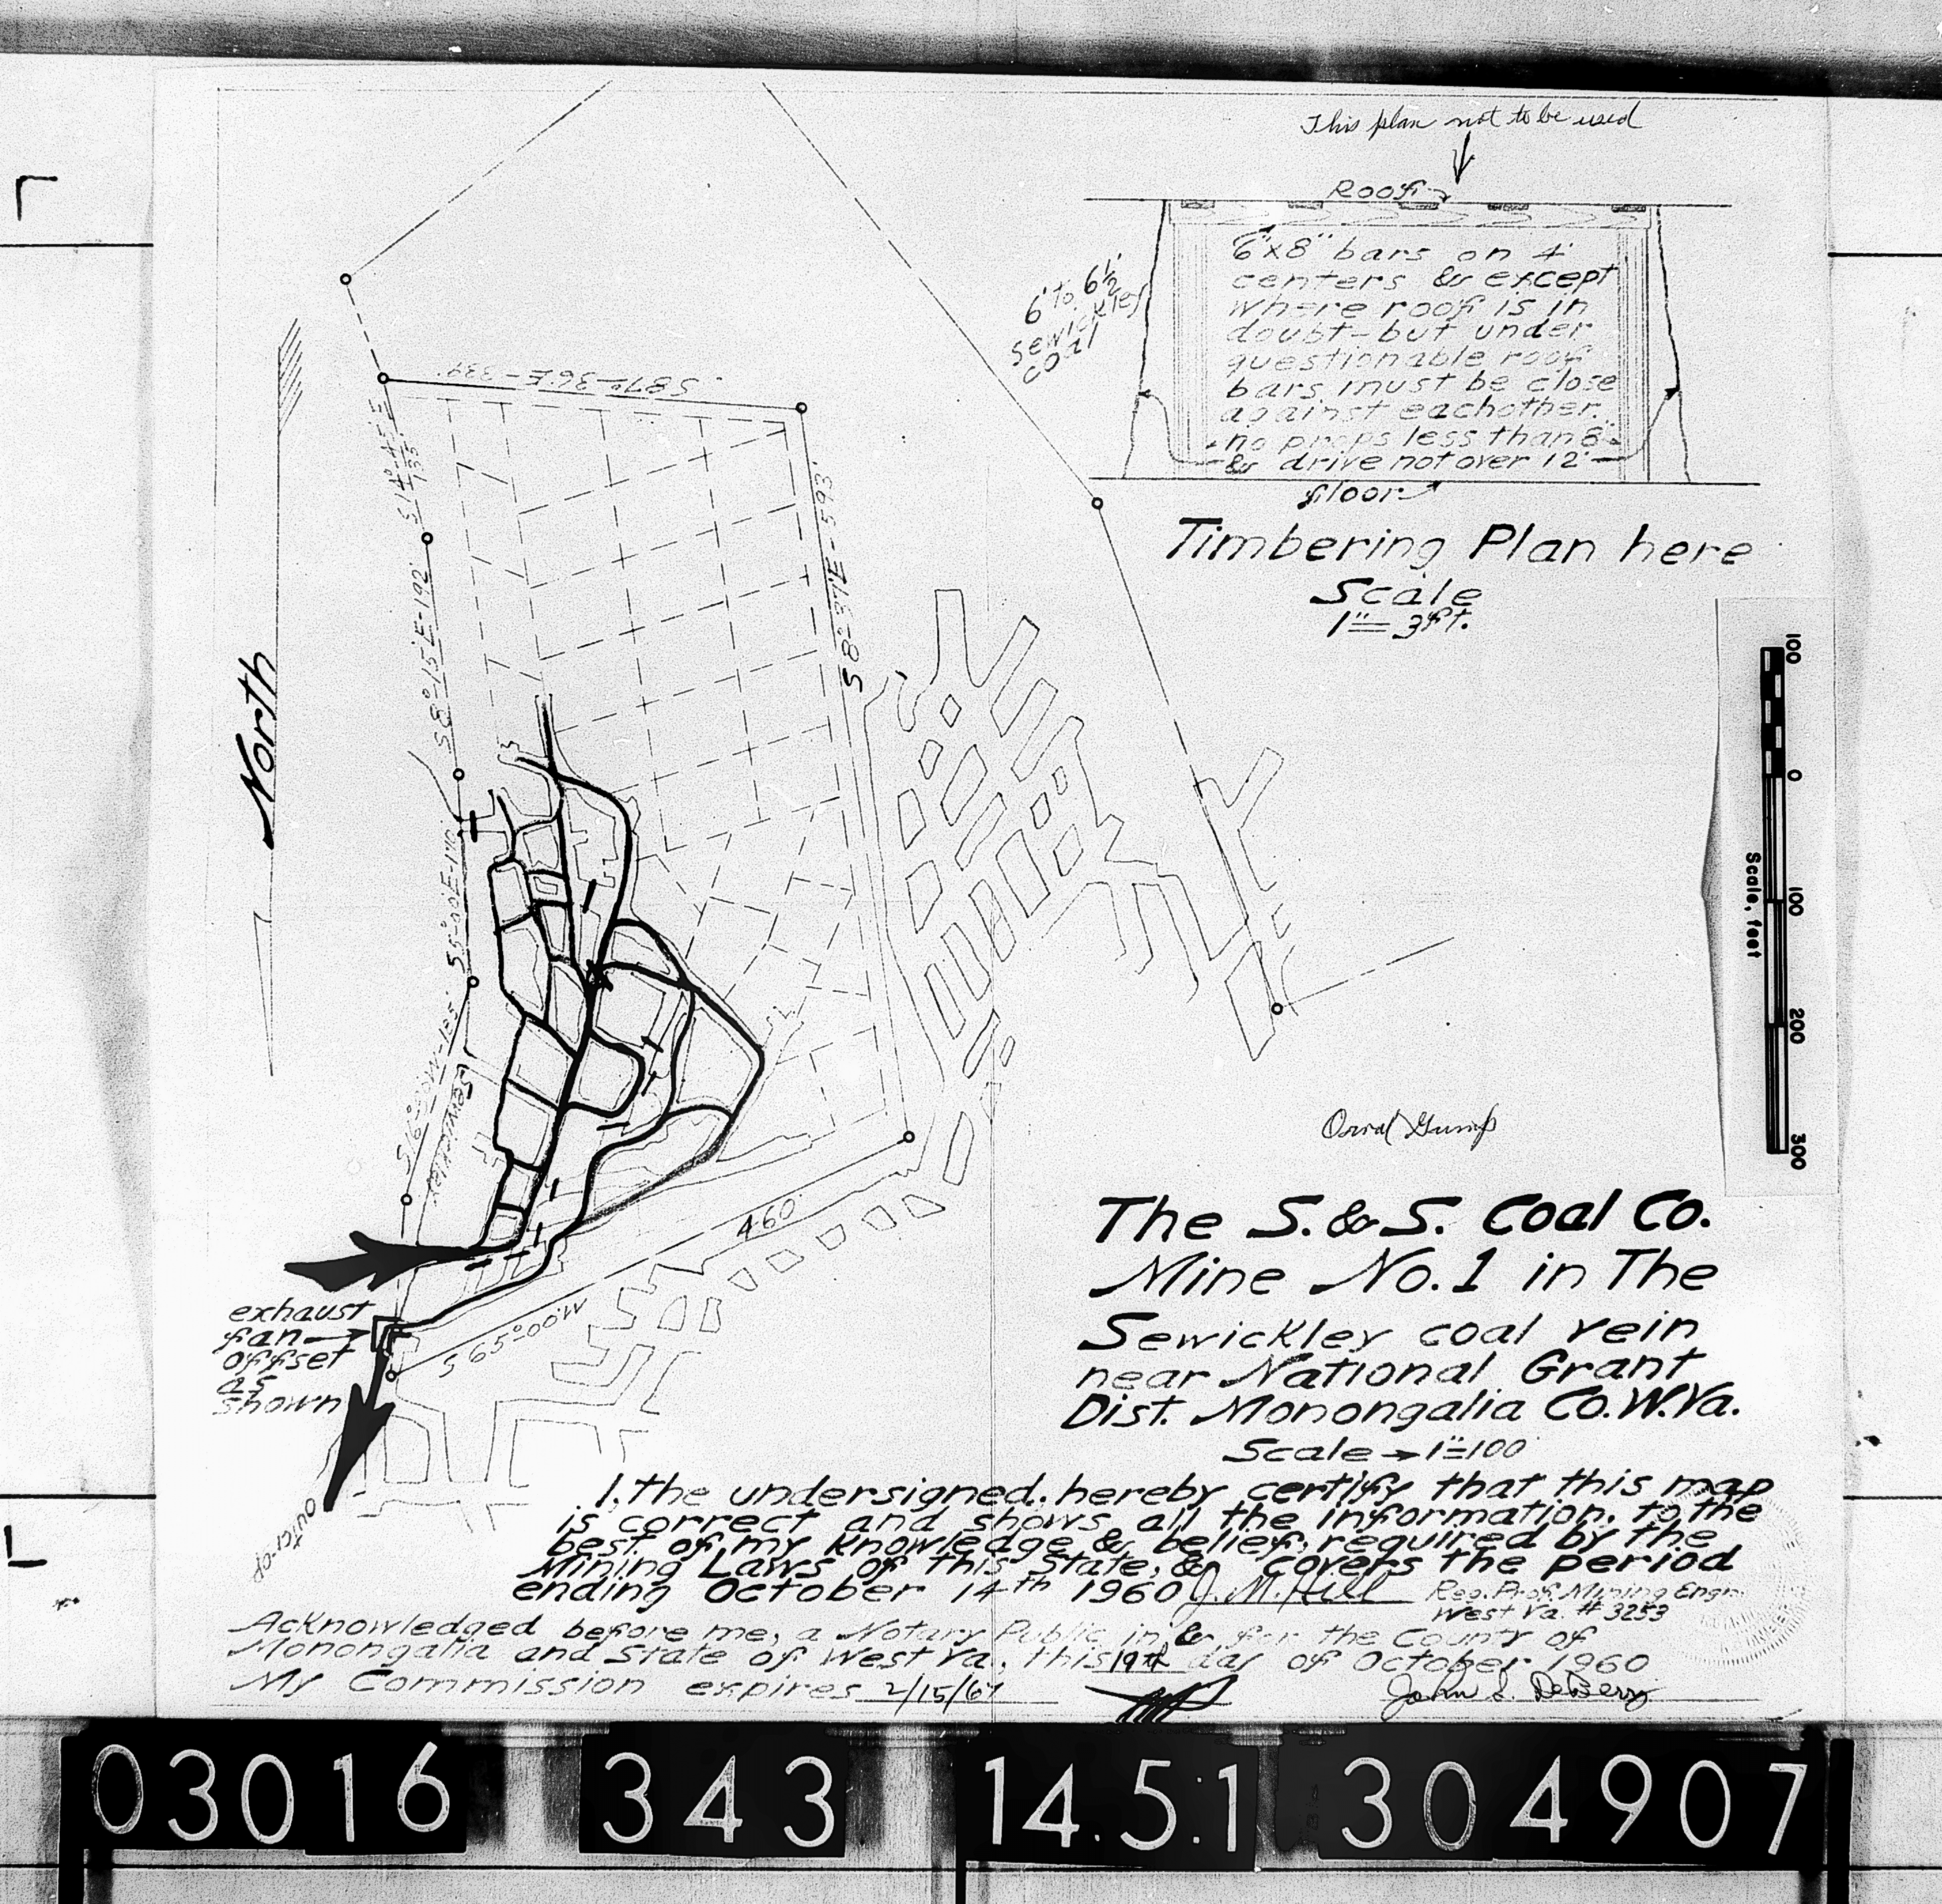 This plan not to be used
Roof
6"x8" bars on 4'
centers & except
where roof is in
doubt-but under
questionable roof
bars must be close
against eachother.
no props less than 8"
& drive not over 12'
floor
6' to 6½'
sewickley
coal
Timbering Plan here
Scale
1"=3ft.
S87°-36'E-339'
S14°-45'E
135'
S8°-15'E-192'
S8°-37'E-593'
North
S5°-00'E-170'
S16°-00'W-185'
Sewickley
outcrop
460'
S65°00'W
exhaust
fan
offset
as
shown
100
0
100
200
300
Scale, feet
Orval Gump
The S.&S. Coal Co.
Mine No.1 in The
Sewickley coal vein
near National Grant
Dist. Monongalia Co.W.Va.
Scale → 1"=100'
I, the undersigned, hereby certify that this map
is correct and shows all the information, to the
best of my knowledge & belief, required by the
Mining Laws of this State, & covers the period
ending October 14th 1960 J. M. Hill Reg. Prof. Mining Engr.
West Va. # 3253
Acknowledged before me, a Notary Public in & for the County of
Monongalia and State of West Va., this 19th day of October 1960
My Commission expires 2/15/67 John S. DeBerry
03016 343 14.5.1 304907